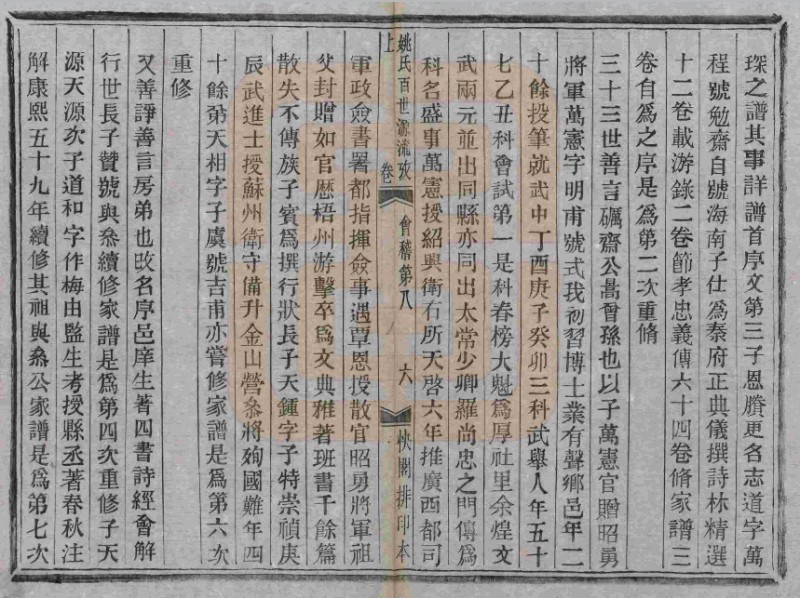 琛之譜其事詳譜首序文第三子恩賸更名志道字萬
程號勉齋自號海南子仕爲秦府正典儀撰詩林精選
十二卷載游錄二卷節孝忠義傳六十四卷脩家譜三
卷自爲之序是爲第二次重脩
三十三世善言礪齋公暠曾孫也以子萬憲官贈昭勇
將軍萬憲字明甫號式我初習博士業有聲鄉邑年二
十餘投筆就武中丁酉庚子癸卯三科武舉人年五十
七乙丑科會試第一是科春榜大魁爲厚社里余煌文
武兩元並出同縣亦同出太常少卿羅尚忠之門傳爲
科名盛事萬憲授紹興衛右所天啓六年推廣西都司
姚氏百世源流攷
上卷
會稽第八
六
快閣排印本
軍政僉書署都指揮僉事遇覃恩授散官昭勇將軍祖
父封贈如官歷梧州游擊卒爲文典雅著班書千餘篇
散失不傳族子賓爲撰行狀長子天鍾字子特崇禎庚
辰武進士授蘇州衛守備升金山營叅將殉國難年四
十餘第天相字子虞號吉甫亦嘗修家譜是爲第六次
重修
又善諍善言房弟也攺名序邑庠生著四書詩經會解
行世長子贊號與叅續修家譜是爲第四次重修子天
源天源次子道和字作梅由監生考授縣丞著春秋注
解康熙五十九年續修其祖與叅公家譜是爲第七次